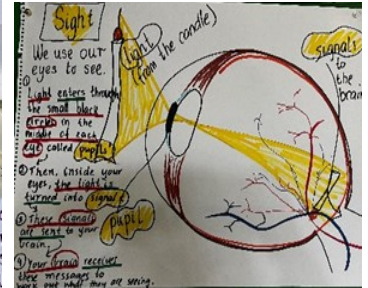 Sight
We use our
eyes to see.
① Light enters through
the small black
circles in the
middle of each
eye called pupils.
② Then, inside your
eyes, the light is
turned into signals
③ These signals
are sent to your
brain.
④ Your brain receives
these messages to
work out what they are seeing.
light
(from the candle)
pupil
signals
to
the
brain